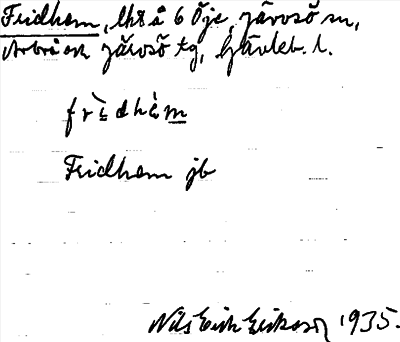 Fridhem, lht å 6 Öje, Järvsö sn,
Arbrå och Järvsö tg, Gävleb. l.
frìdhèm
Fridhem jb
Nils Erik Eriksson 1935.